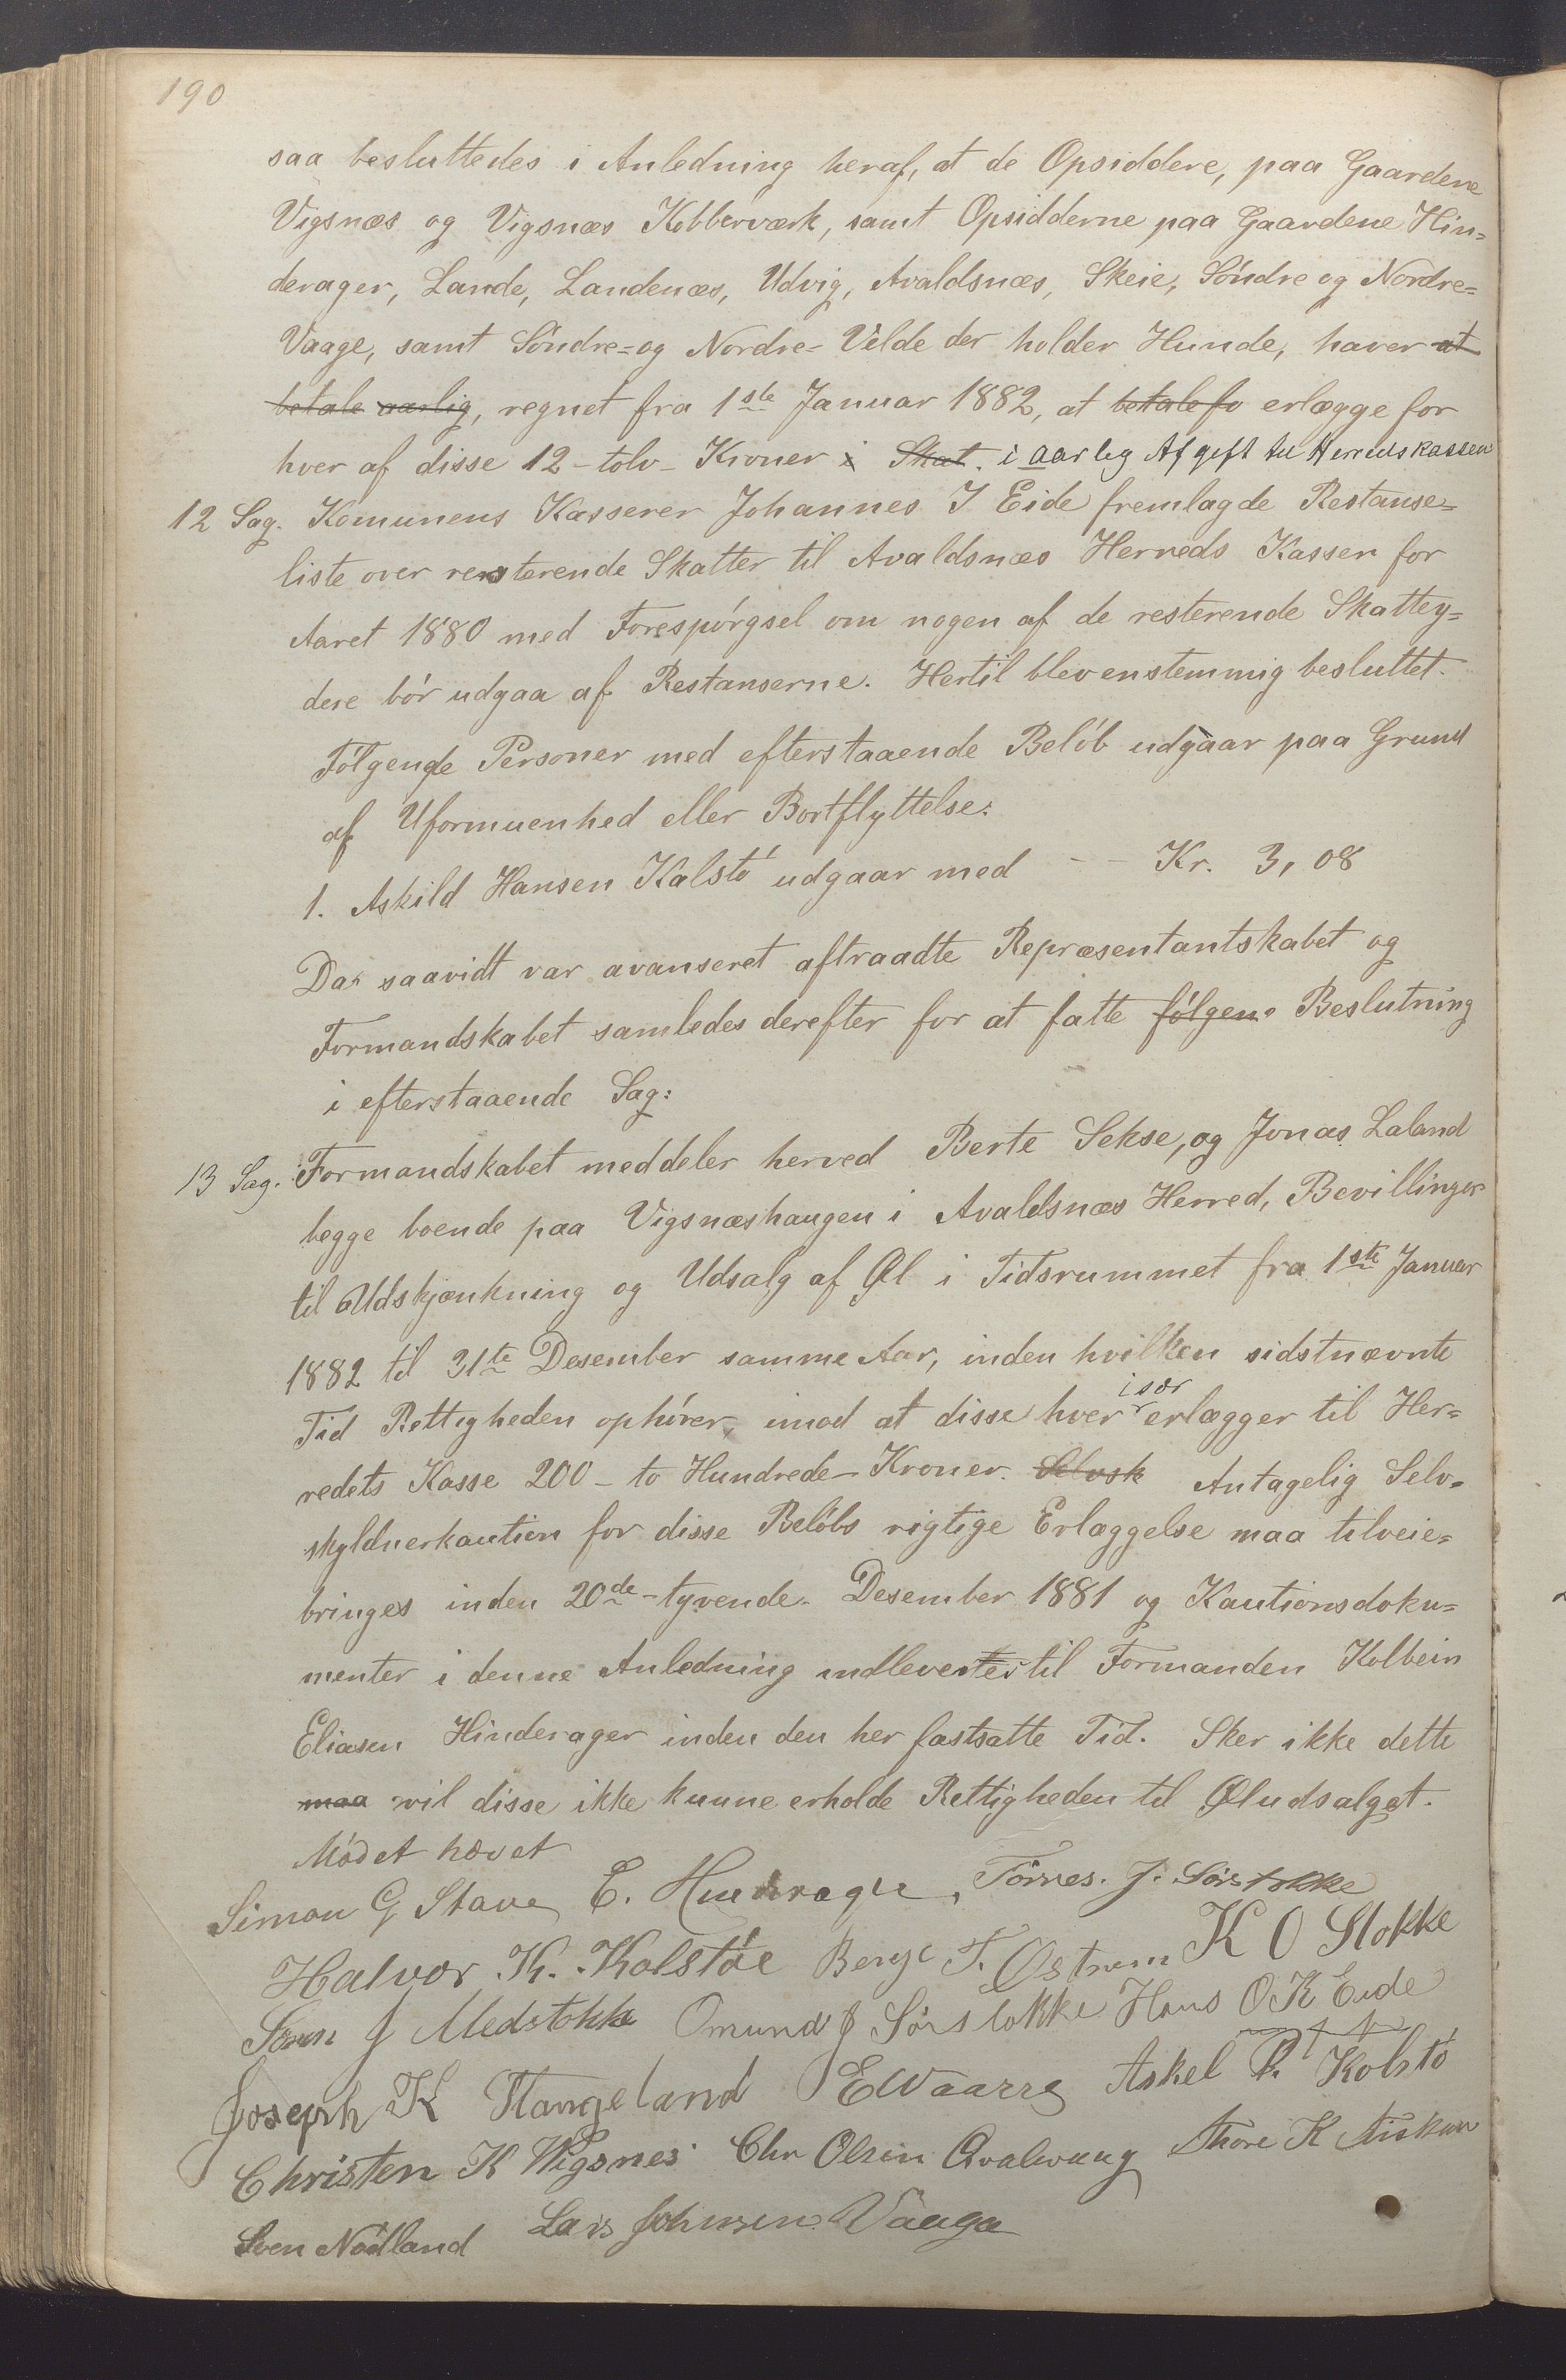 190
saa besluttedes i Anledning heraf, at de Opsiddere, paa Gaardene
Vigsnæs og Vigsnæs Kobberværk, samt Opsidderne paa Gaardene Hin=
derager, Lande, Landenæs, Udvig, Avaldsnæs, Skeie, Söndre og Nordre=
Vaage, samt Söndre= og Nordre= Velde der holder Hunde, haver at
betale aarlig, regnet fra 1ste Januar 1882, at betale fo erlægge for
hver af disse 12 - tolv - Kroner i Skat. i aarlig Afgift til Herredskassen
12 Sag. Komunens Kasserer Johannes I Eide fremlagde Restanse=
liste over resterende Skatter til Avaldsnæs Herreds Kassen for
Aaret 1880 med Forespörgsel om nogen af de resterende Skattey=
dere bör udgaa af Restanserne. Hertil blev enstemmig besluttet.
Fölgende Personer med efterstaaende Belöb udgaar paa Grund
af Uformuenhed eller Bortflyttelse:
1. Askild Hansen Kalstö udgaar med - - Kr. 3,08
Da saavidt var avanseret aftraadte Repræsentantskabet og
Formandskabet samledes derefter for at fatte fölgen. Beslutning
i efterstaaende Sag:
13 Sag. Formandskabet meddeler herved Berte Sekse, og Jonas Laland
begge boende paa Vigsnæshaugen i Avaldsnæs Herred, Bevillinger
til Udskjænkning og Udsalg af Øl i Tidsrummet fra 1ste Januar
1882 til 31te Desember samme Aar, inden hvilken sidstnævnte
Tid Rettigheden ophörer, imod at disse hver især erlægger til Her=
redets Kasse 200 - to Hundrede - Kroner. Selvsk Antagelig Selv=
skyldnerkaution for disse Belöbs rigtige Erlæggelse maa tilveie=
bringes inden 20de - tyvende - Desember 1881 og Kautionsdoku=
menter i denne Anledning indleveres til Formanden Kolbein
Eliasen Hinderager inden den her fastsatte Tid. Sker ikke dette
maa vil disse ikke kunne erholde Rettigheden til Øludsalget.
Mödet hævet
Simon G Stave E. Hinderager, Törres. J. Sörstokke
Halvor K. Kolstöe Berge T. Østrem K O Stokke
Sven J Medstokke Omund J Sörstokke Hans O K Eide
Joseph K Stangeland E Waarre Askel P. Kolstö
Christen K Wigsnes Chr Olsen Qvalevaag Thore K
Sven Nödland Lars Johnsen Vaaga